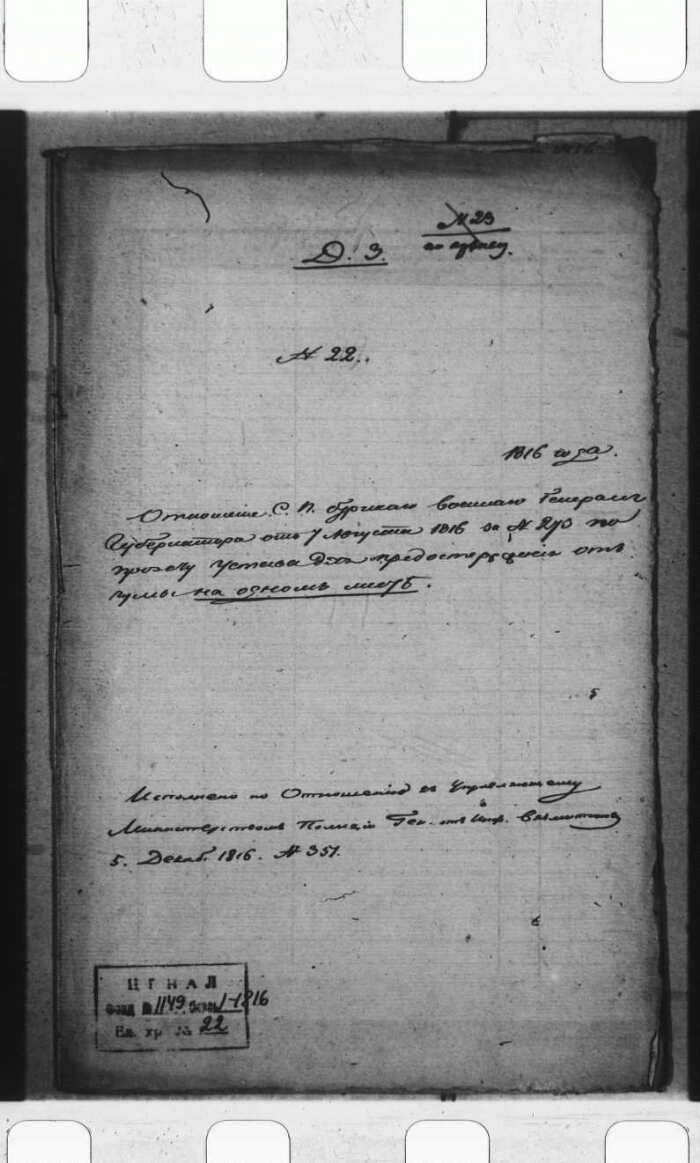 № 23
по
Д. З.
№ 22.
1816 года.
Отношение С. П. бургскаго военнаго Генералъ
Губернатора отъ 7 Августа 1816 за № 273 по
проэкту Устава для предостереженія отъ
чумы на одномъ листѣ.
Исполнено по Отношенію къ Управляющему
Министерствомъ Полиціи Ген. отъ Инф. Вязмитинову
5. Декаб. 1816. № 351.
ЦГИАЛ
Фонд № 1149 опись 1-1816
Ед. хр. № 22